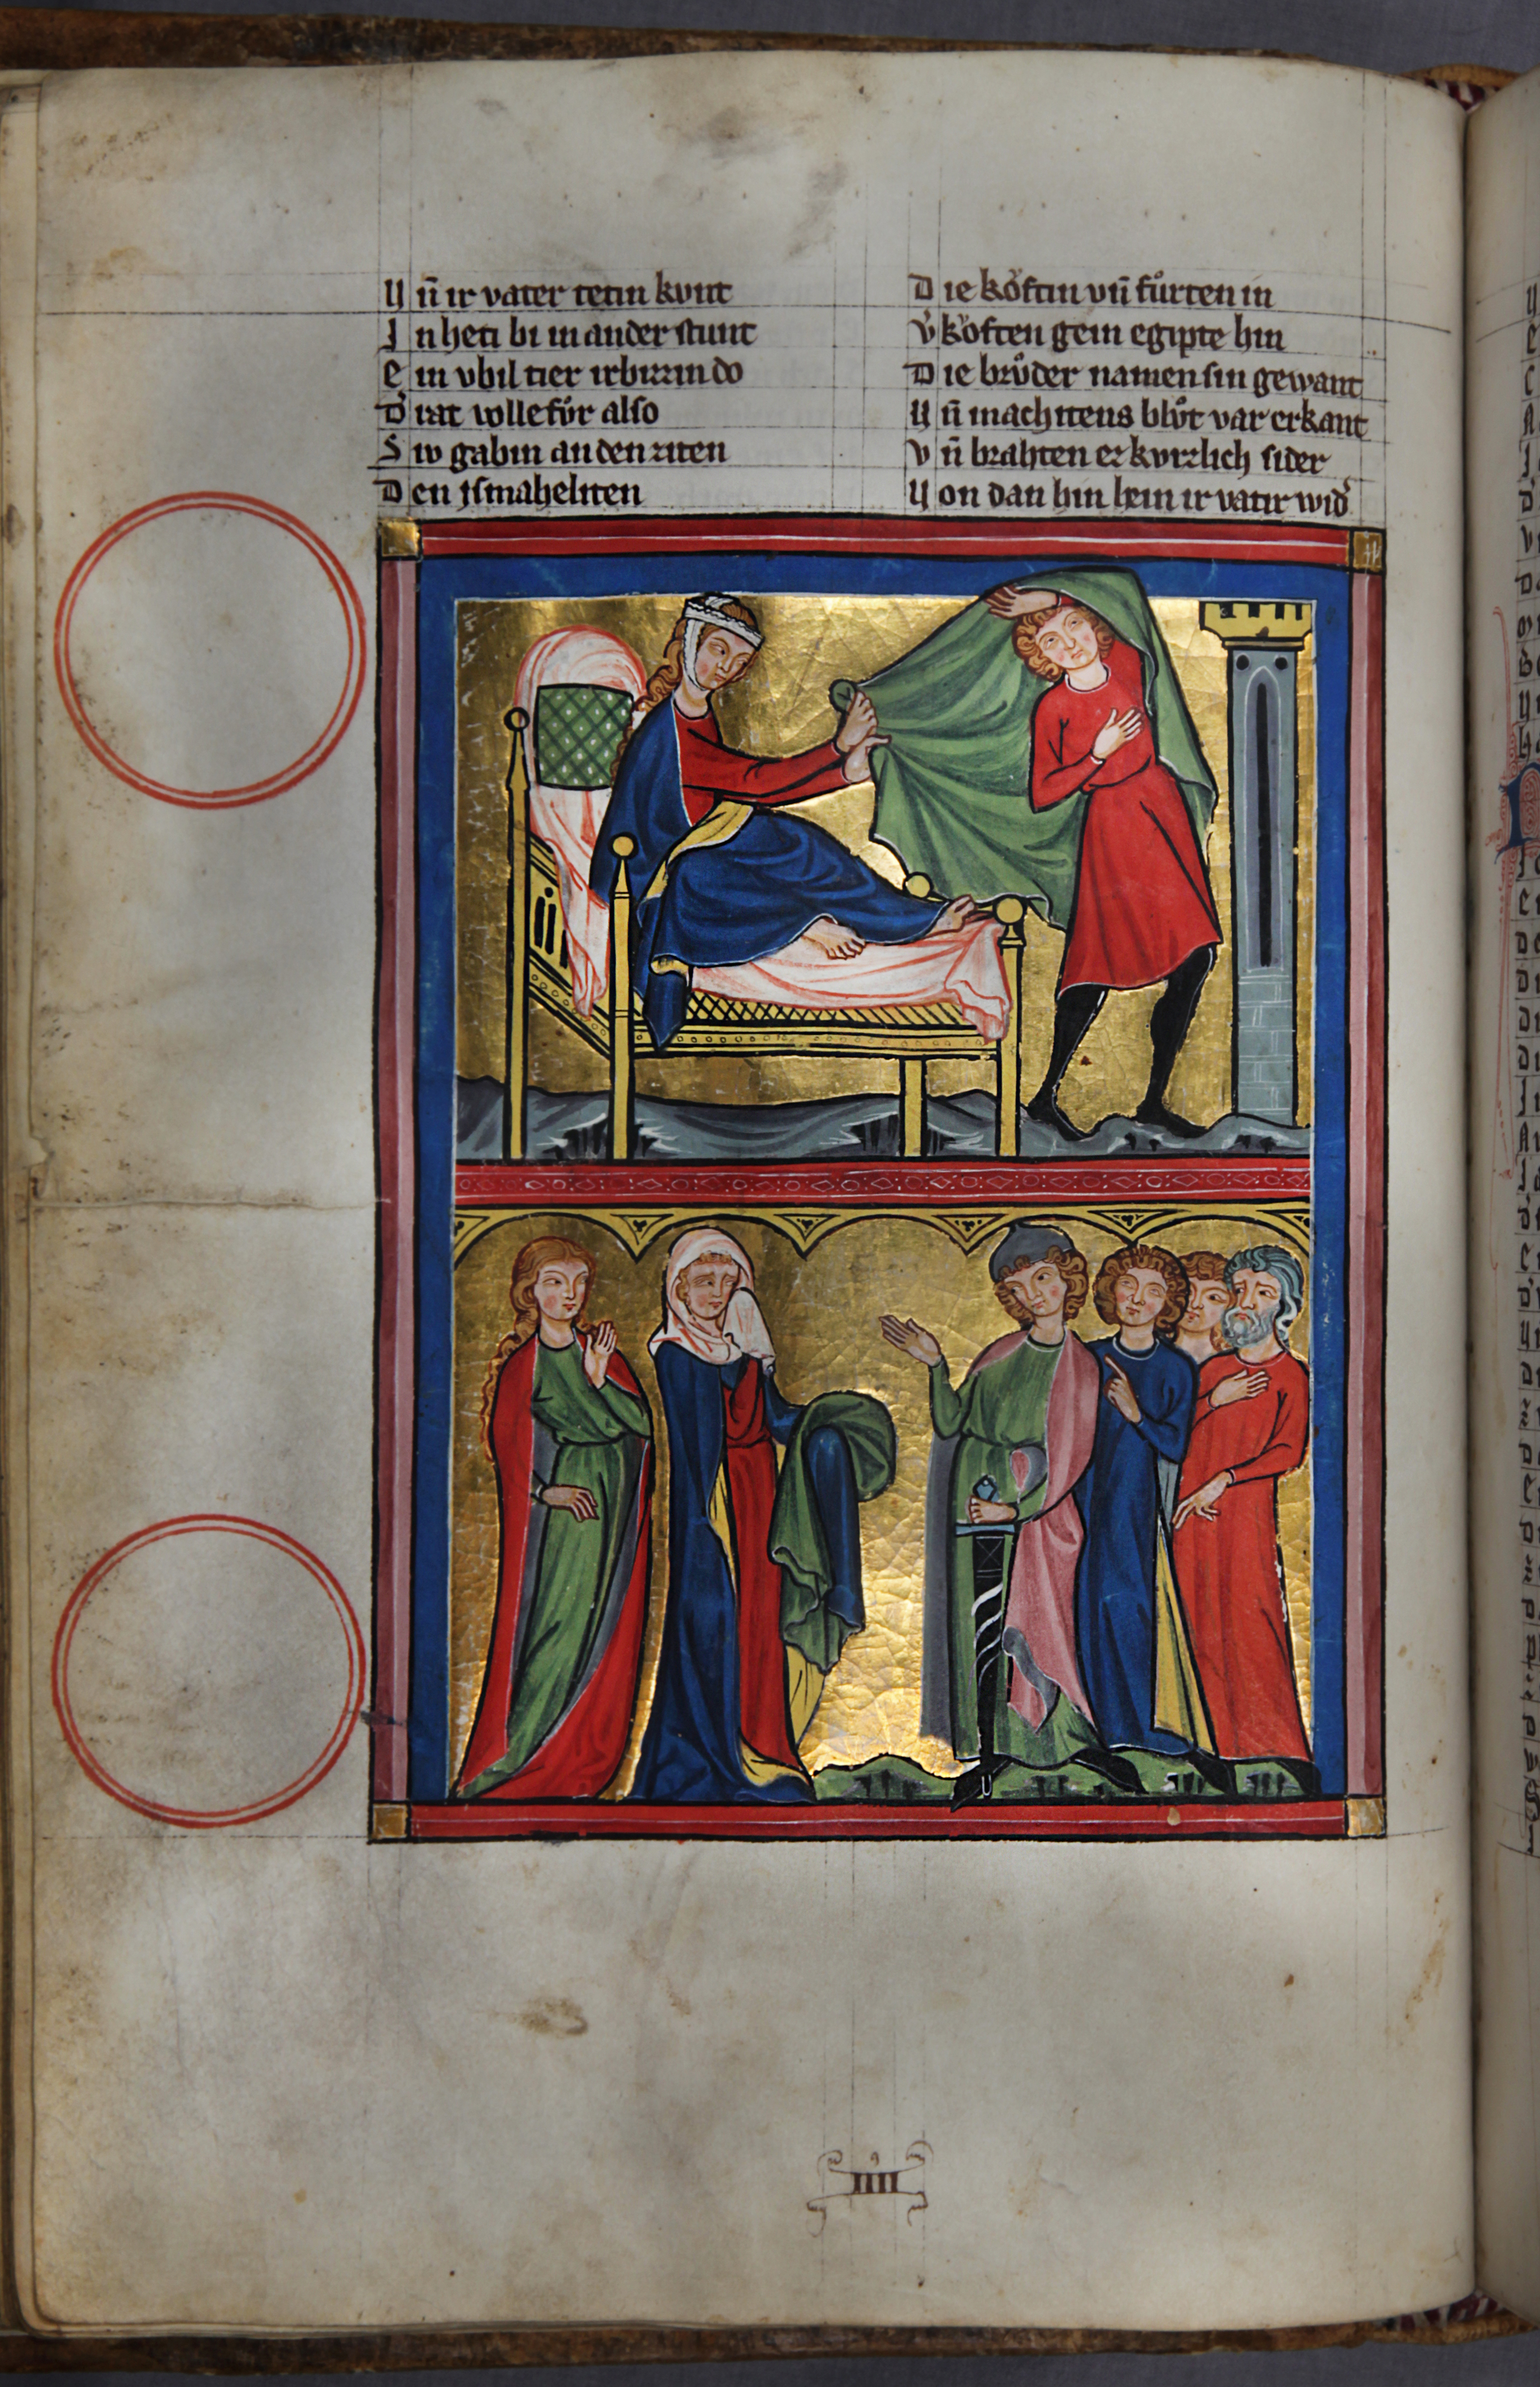 Uñ ir vater tetin kvnt
In heti bi in ander stunt
Ein vbil tier irbizzin do
Dˢ rat vollefůr also
Siv gabin an den ziten
Den ismaheliten
Die kŏftin vñ fůrten in
Vˢkŏften gein egipte hin
Die brůder namen sin gewant
Uñ machitens blůt var erkant
Vñ brahten ez kvrzlich sider
Uon dan hin heim ir vatir widˢ
IIII